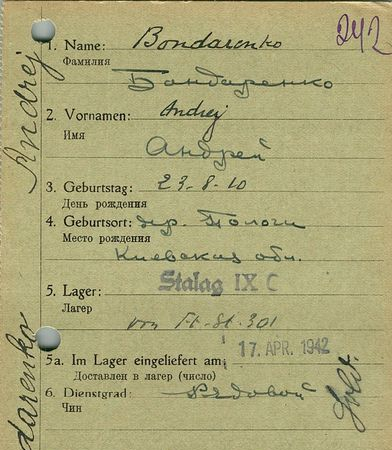 242
1. Name: Bondarenko
Фамилия
Бондаренко
2. Vornamen: Andrej
Имя
Андрей
3. Geburtstag: 23-8-10
День рождения
4. Geburtsort: дер. Пологи
Место рождения
Киевская обл.
5. Lager: Stalag IX C
Лагер
von Ft-St. 301
5a. Im Lager eingeliefert am: 17. APR. 1942
Доставлен в лагер (число)
6. Dienstgrad: Рядовой
Чин
Sold.
Andrej
darenko